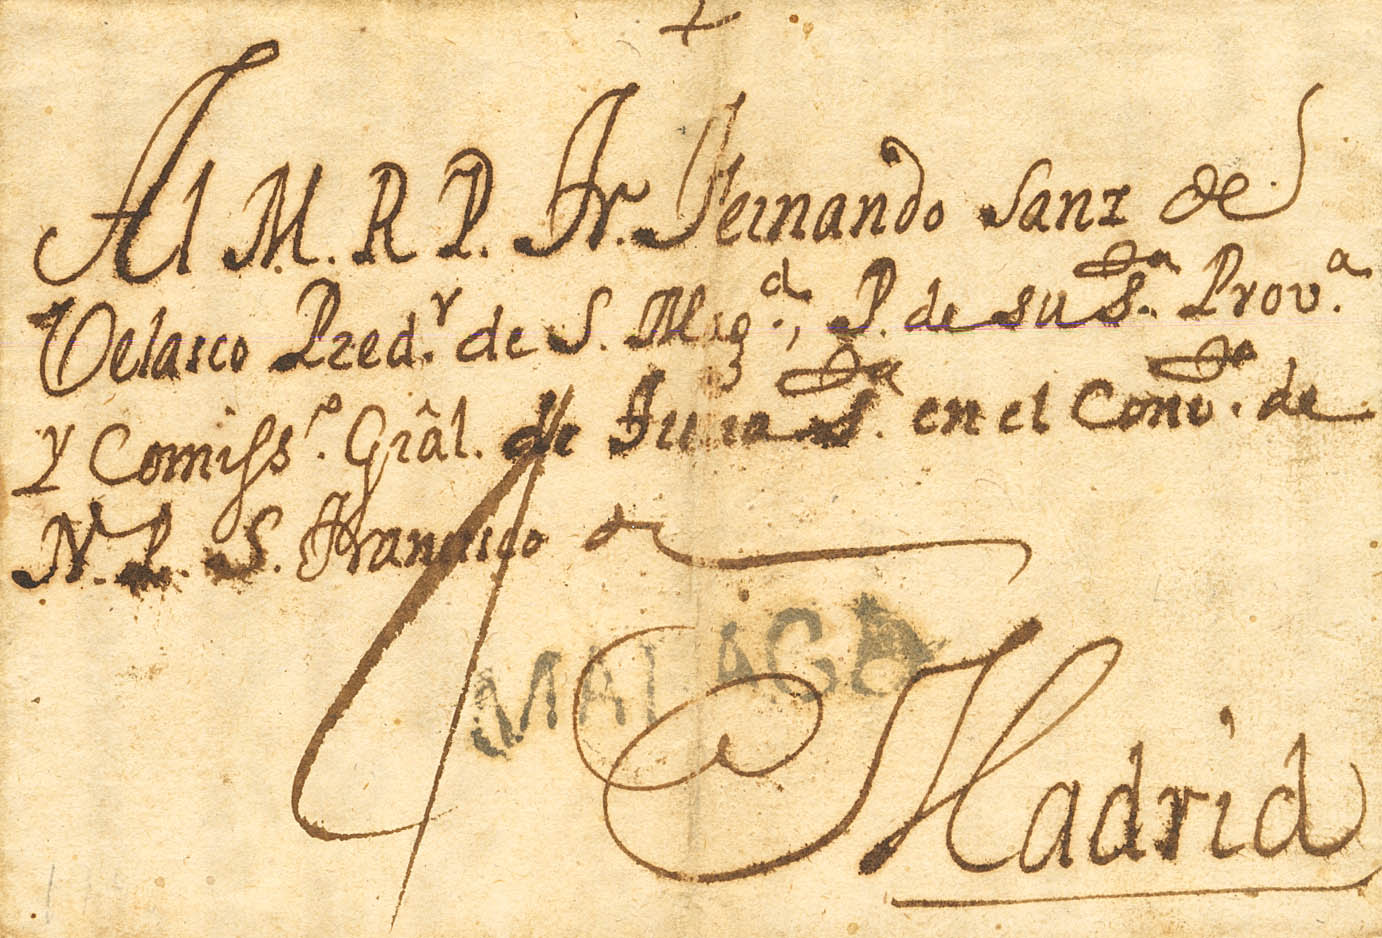 Al M. R. P. Fr. Fernando Sanz de
Velasco Pred.r de S. Mag.d, P. de su S.ta Prov.a
y Comiss.o Grâl. de S.ta en el Conv.to de
N. P. S. Francisco de
MALAGA
Madrid